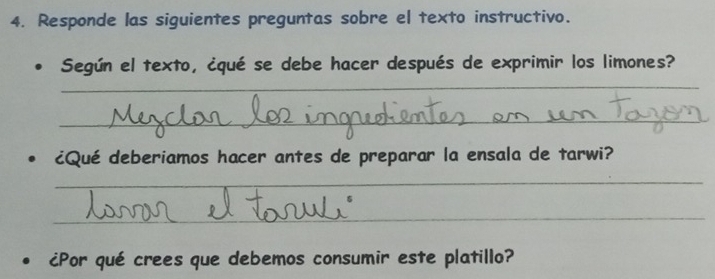 4. Responde las siguientes preguntas sobre el texto instructivo.
• Según el texto, ¿qué se debe hacer después de exprimir los limones?
Mezclar los ingredientes en un Tazon
• ¿Qué deberiamos hacer antes de preparar la ensala de tarwi?
lavar el taruli
• ¿Por qué crees que debemos consumir este platillo?